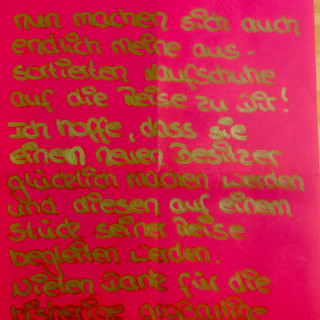 nun machen sich auch
endlich meine aus-
sortierten Laufschuhe
auf die Reise zu Dir!
Ich hoffe, dass sie
einem neuen Besitzer
glücklich machen werden
und diesen auf einem
Stück seiner Reise
begleiten werden.
Vielen Dank für die
bisherige großartige